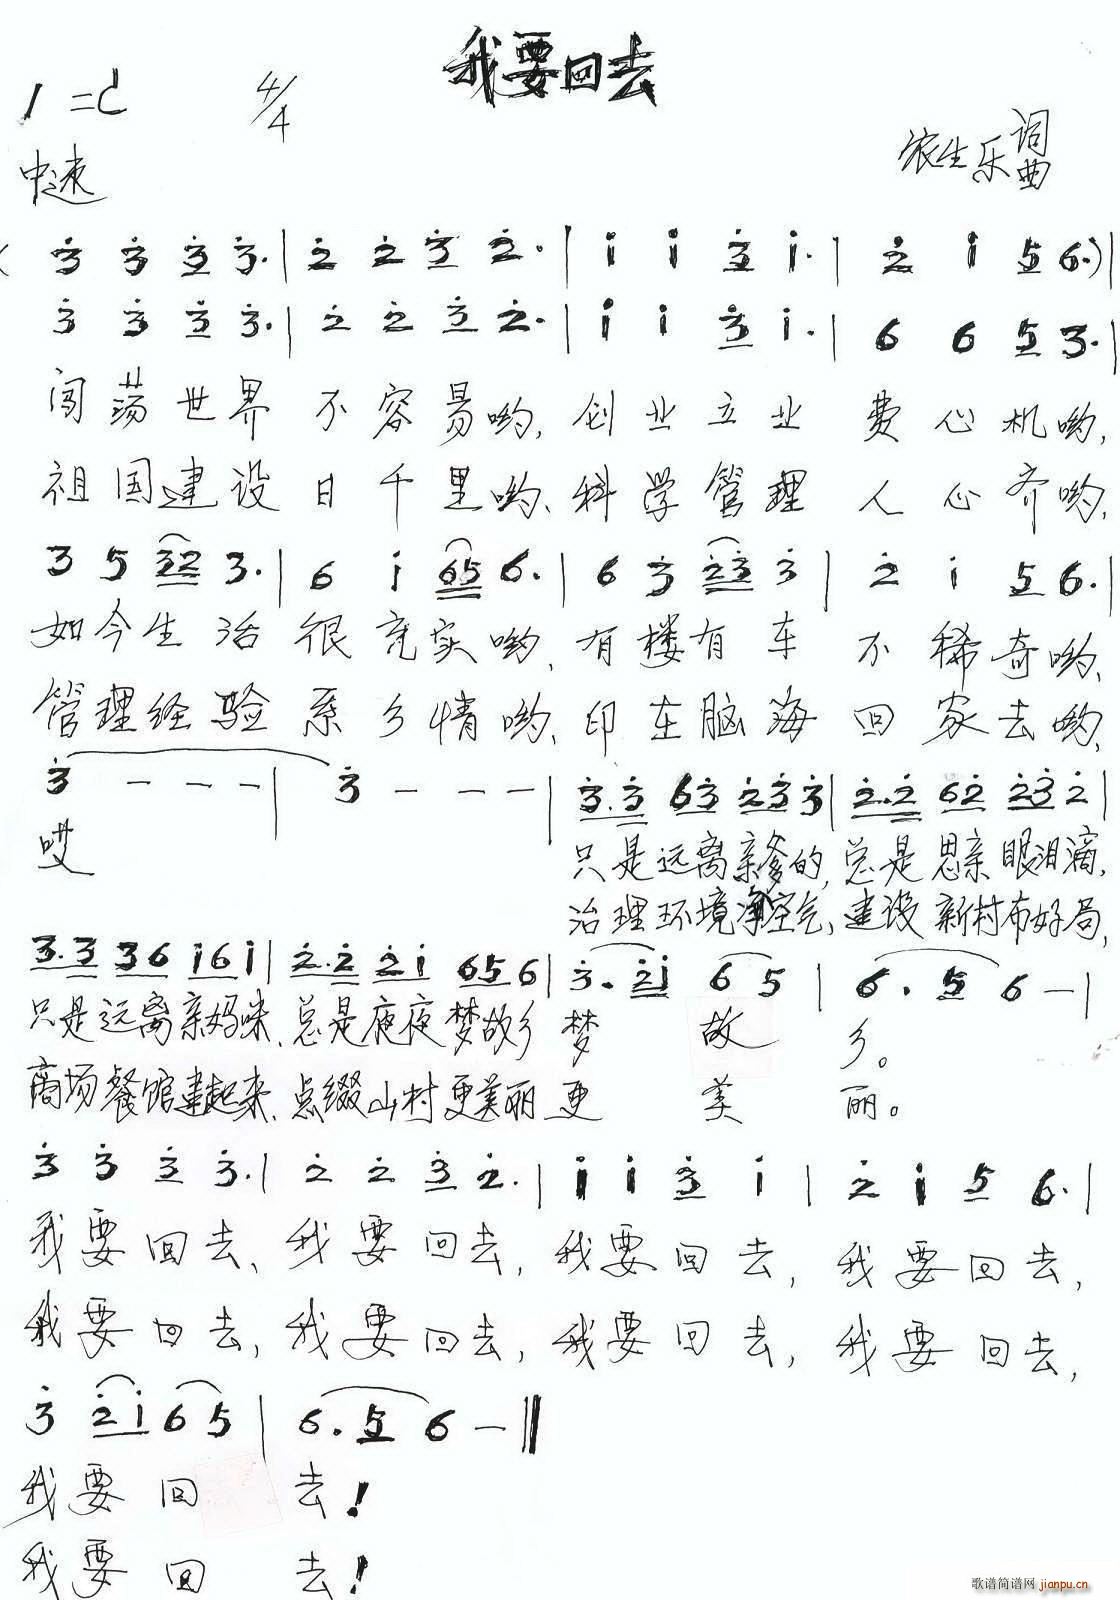 我要回去
1=C 4/4
农生乐 词曲
中速
( 3̇ 3̇ 3̇ 3̇. | 2̇ 2̇ 3̇ 2̇. | 1̇ 1̇ 3̇ 1̇. | 2̇ 1̇ 5 6.) |
3̇ 3̇ 3̇ 3̇. | 2̇ 2̇ 3̇ 2̇. | 1̇ 1̇ 3̇ 1̇. | 6 6 5 3. |
闯荡世界 不容易哟, 创业立业 费心机哟,
祖国建设 日千里哟、科学管理 人心齐哟,
3 5 32 3. | 6 1̇ 65 6. | 6 3̇ 2̇3̇ 3̇ | 2̇ 1̇ 5 6. |
如今生活 很充实哟, 有楼有车 不稀奇哟、
管理经验 系乡情哟、印在脑海 回家去哟,
3̇ - - - | 3̇ - - - | 3̇.3̇ 63̇ 2̇3̇3̇ | 2̇.2̇ 62̇ 2̇3̇2̇ |
哎 只是远离亲爹的, 总是思亲眼泪滴,
治理环境净空气, 建设新村布好局,
3̇.3̇ 3̇6 1̇61̇ | 2̇.2̇ 2̇1̇ 656 | 3̇. 2̇1̇ 6 5 | 6. 5 6 - |
只是远离亲妈咪、总是夜夜梦故乡 梦 故 乡。
商场餐馆建起来、点缀山村更美丽 更 美 丽。
3̇ 3̇ 3̇ 3̇. | 2̇ 2̇ 3̇ 2̇. | 1̇ 1̇ 3̇ 1̇ | 2̇ 1̇ 5 6. |
我要回去、我要回去, 我要回去, 我要回去,
我要回去, 我要回去, 我要回去, 我要回去,
3̇ 2̇1̇ 6 5 | 6. 5 6 - ‖
我要回 去!
我要回 去!
歌谱简谱网 jianpu.cn